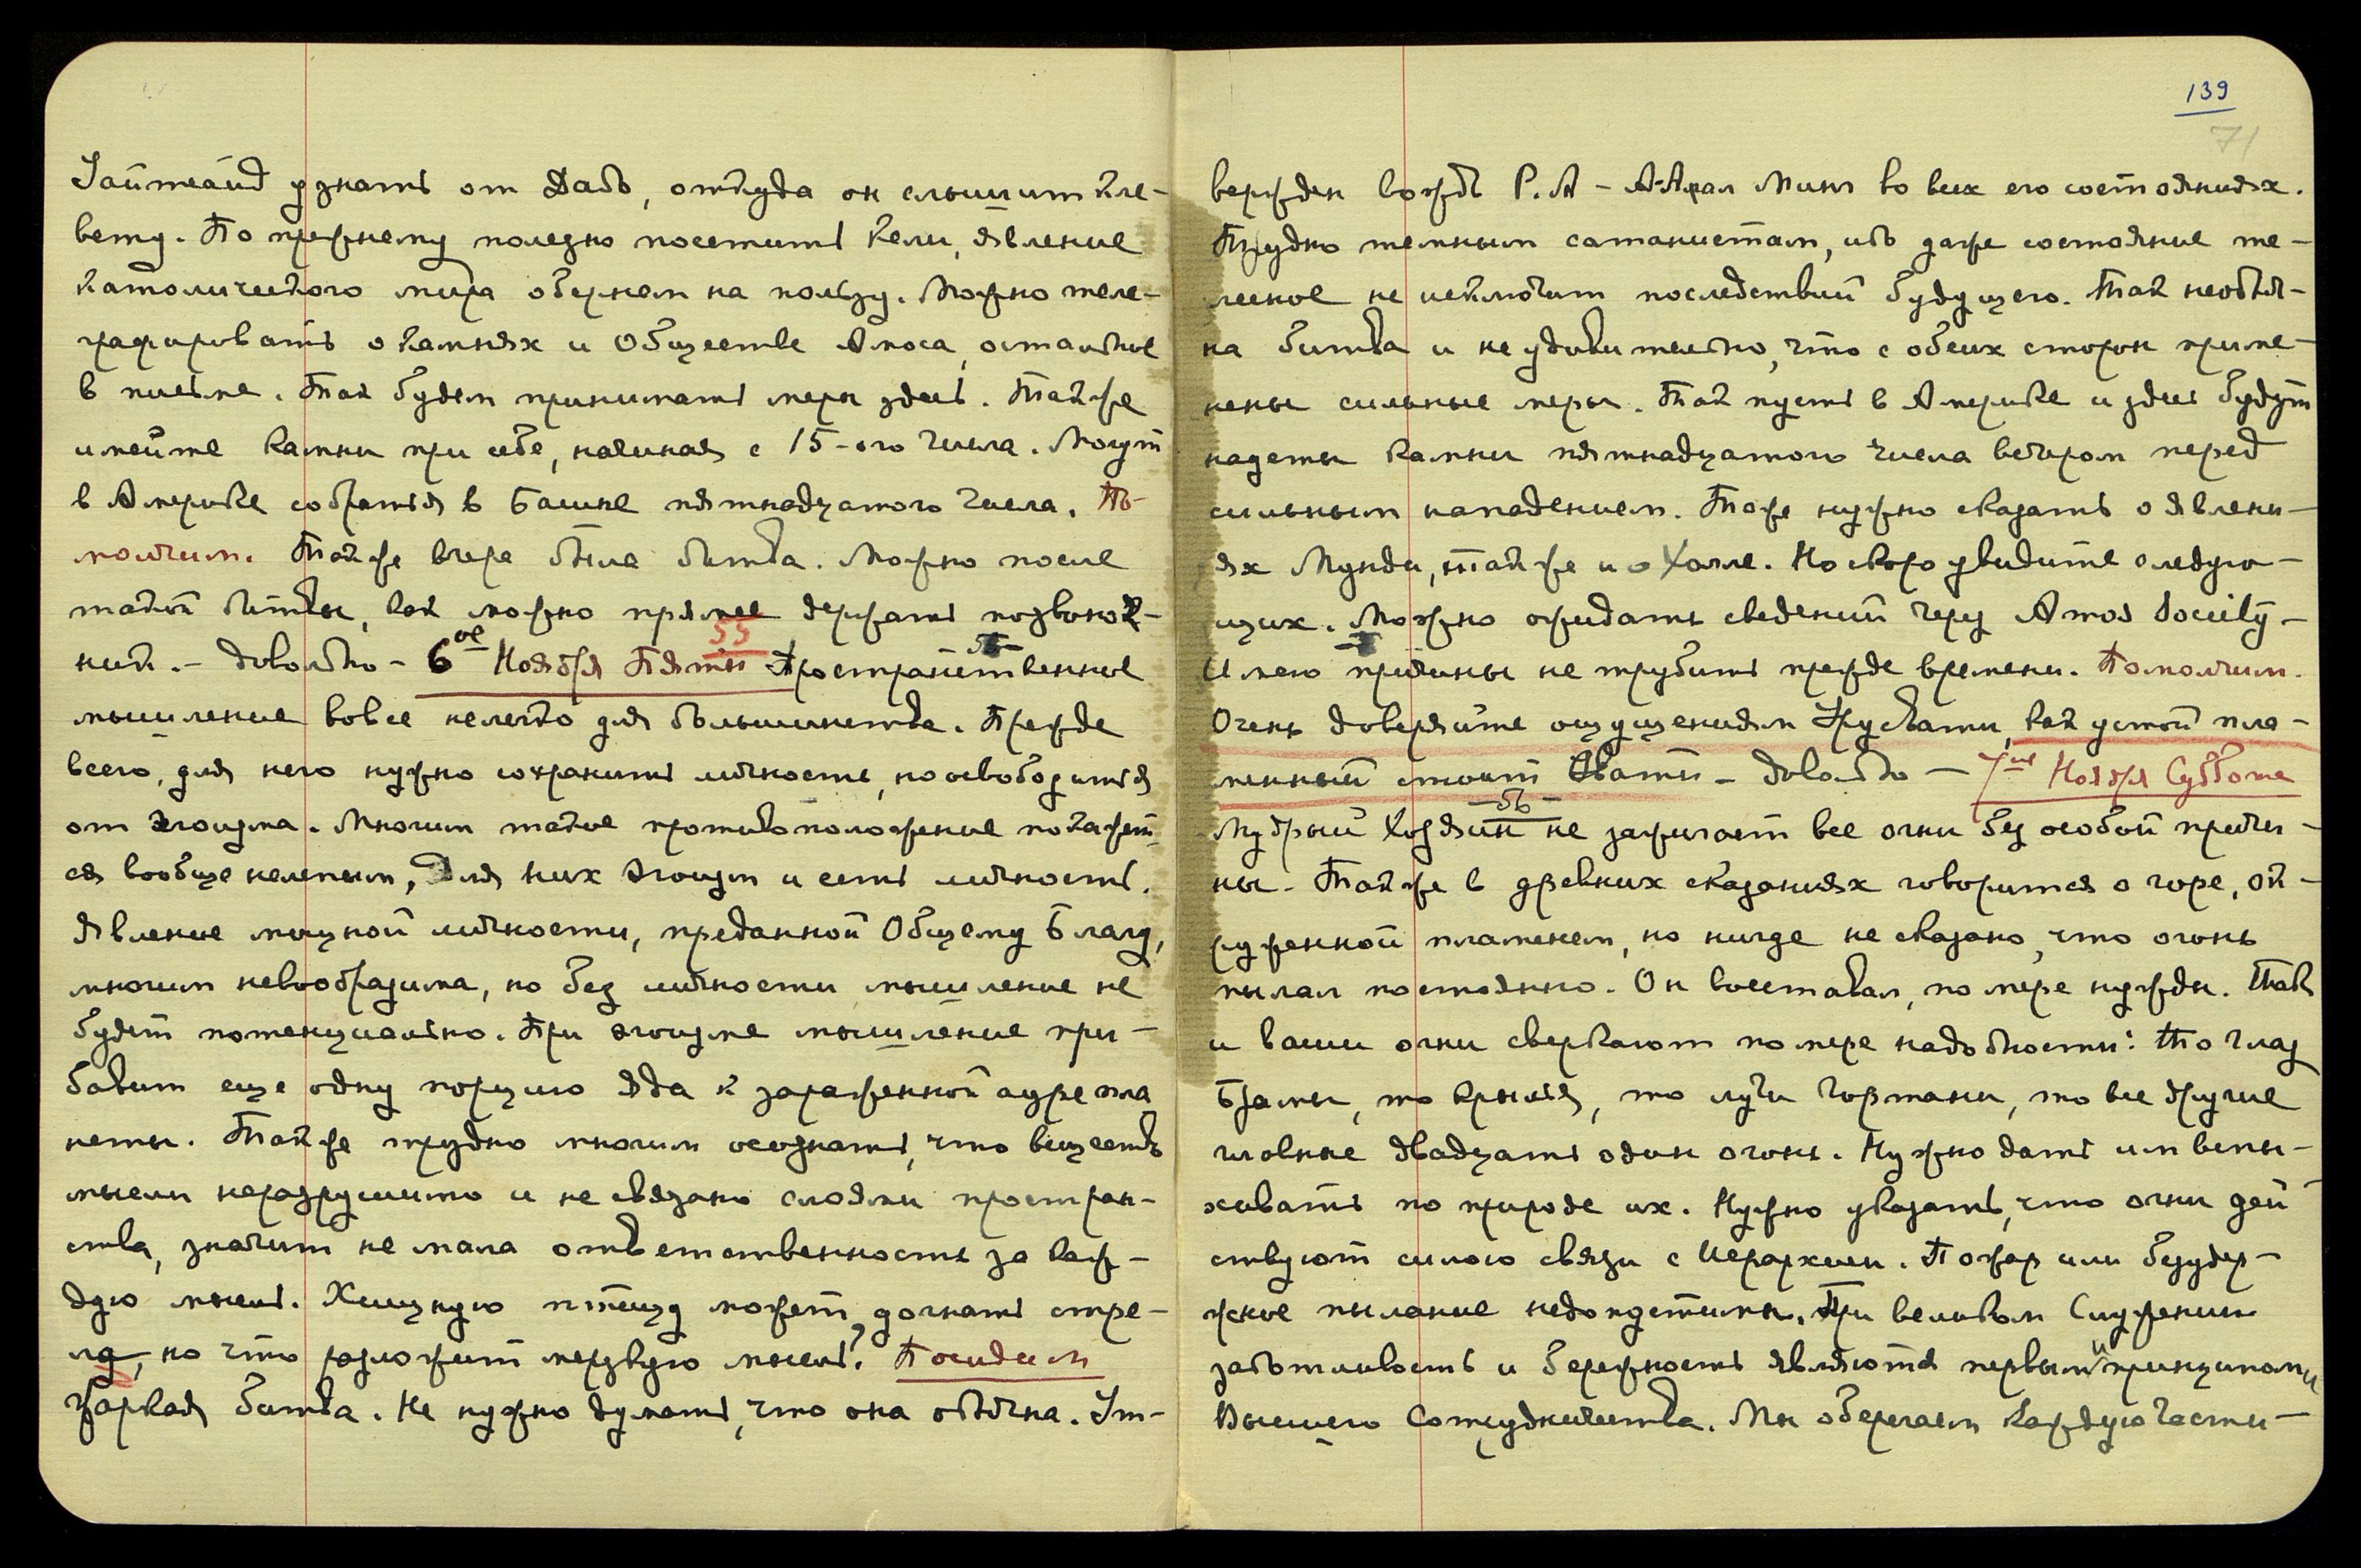 Уайтсайд узнать от Дабо, откуда он слышит кле-
вету. По прежнему полезно посетить Кели, явление
католического мира обернем на пользу. Можно теле-
графировать о камнях и Обществе Амоса, остальное
в письме. Так будем принимать меры здесь. Также
имейте камни при себе, начиная с 15-ого числа. Могут
в Америке собраться в Башне пятнадцатого числа. По-
молчим. Также вчера была битва. Можно после
такой битвы, как можно прямее держать позвоноч-
ник. – довольно – 6ое Ноября Пятн
55
Пространственное
мышление вовсе нелегко для большинства. Прежде
всего, для него нужно сохранить личность, но освободиться
от эгоизма. Многим такое противоположение покажет-
ся вообще нелепым, Для них эгоизм и есть личность.
Явление мощной личности, преданной Общему Благу,
многим невообразима, но без личности мышление не
будет потенциально. При эгоизме мышление при-
бавит еще одну порцию яда к зараженной ауре пла
неты. Также трудно многим осознать, что вещество
мысли неразрушимо и не связано слоями простран-
ства, значит не мала ответственность за каж-
дую мысль. Хищную птицу может догнать стре-
ла, но что разложит мерзкую мысль? Посидим
Жаркая битва. Не нужно думать, что она обычна. Ут-
139
71
вержден вождь Р.А – А-Лал Минг во всех его состояниях.
Трудно темным сатанистам, ибо даже состояние те-
лесное не исключит последствий будущего. Так необыч-
на битва и не удивительно, что с обеих сторон приме-
нены сильные меры. Так пусть в Америке и здесь будут
надеты камни пятнадцатого числа вечером перед
сильным нападением. Тоже нужно сказать о явлени-
ях Мунди, также и о Холле. Но скоро увидите следую-
щих. Можно ожидать сведений через Amos Society –
Имею причины не трубить прежде времени. Помолчим.
Очень доверяйте ощущениям Урусвати, как устой пла-
менный стоит Свати – довольно – 7ое Ноября Суббота
56
Мудрый хозяин не зажигает все огни без особой причи-
ны. Также в древних сказаниях говорится о горе, ок-
руженной пламенем, но нигде не сказано, что огонь
пылал постоянно. Он восставал, по мере нужды. Так
и ваши огни сверкают по мере надобности: То глаз
Брамы, то крылья, то лучи гортани, то все другие
главные двадцать один огонь. Нужно дать им вспы-
хивать по природе их. Нужно указать, что огни дей
ствуют силою связи с Иерархией. Пожар или безудер-
жное пылание недопустимы. При великом Служении
заботливость и бережность являются первыми принципами
Высшего Сотрудничества. Мы оберегаем каждую части-